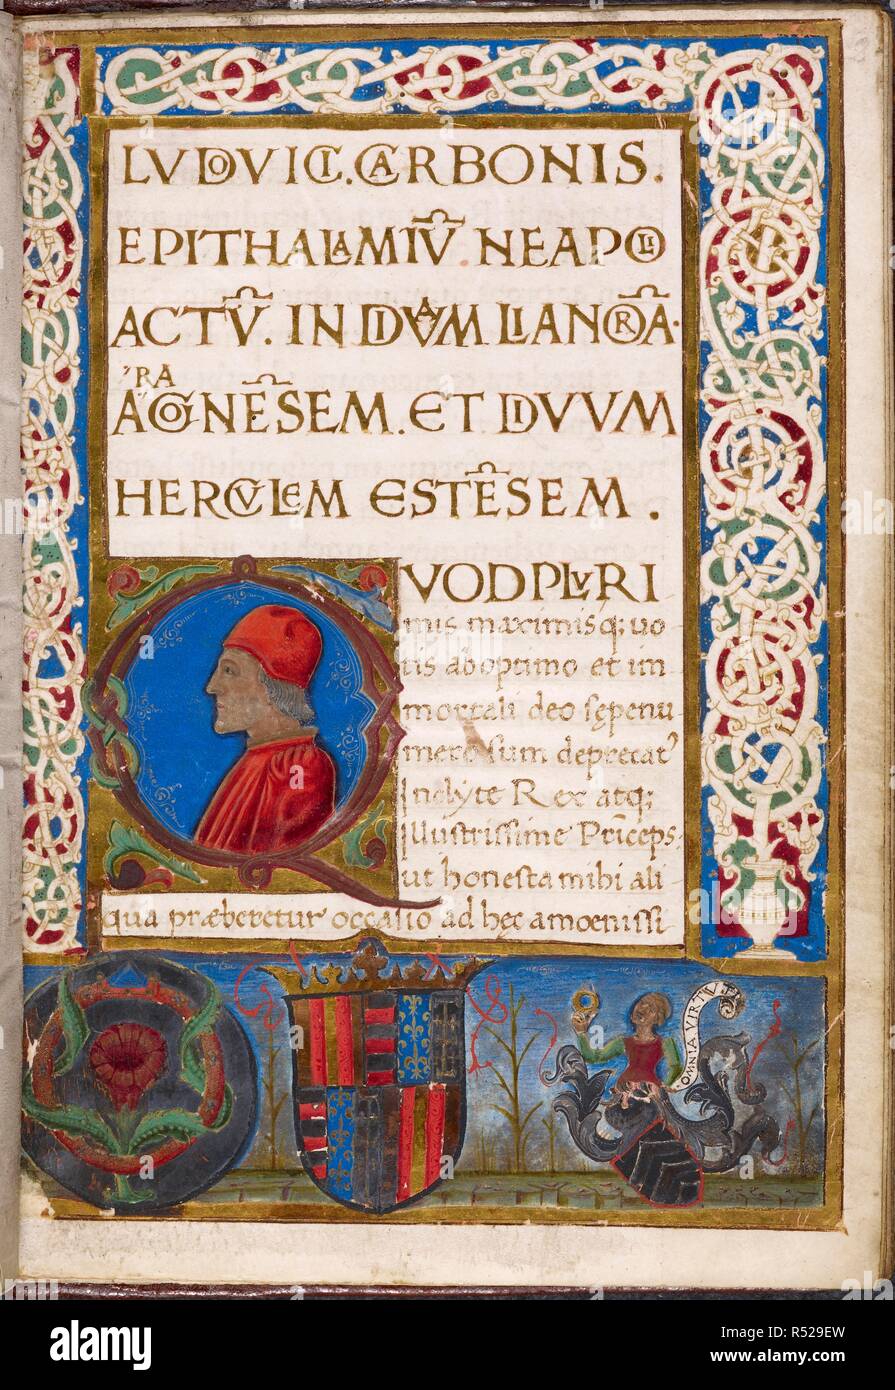 LVDOVICI. CARBONIS.
EPITHALAMIŪ NEAPOLI
ACTŪ. IN DIVAM LIANORĀ.
ARAGONĒSEM. ET DIVVM
HERCVLEM ESTĒSEM.
QVODPLVRI
mis maximisq; uo
tis ab optimo et im
mortali deo sępenu
mero sum deprecat᾽
Inclyte Rex atq;
illustrissime Prīceps
ut honesta mihi ali
qua præberetur occasio ad hęc amoenissi
OMNIA VIRTV
alamy
Image ID: R529EW
www.alamy.com